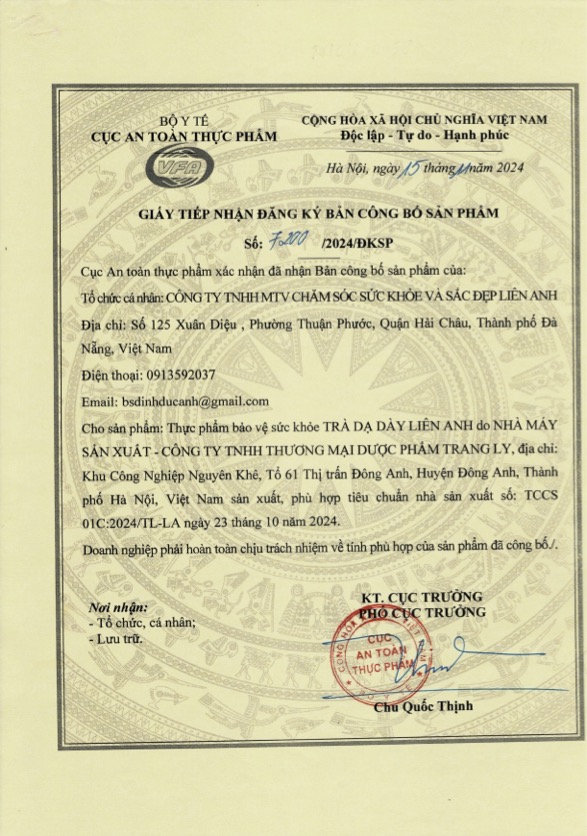 BỘ Y TẾ
CỤC AN TOÀN THỰC PHẨM
VFA
CỘNG HÒA XÃ HỘI CHỦ NGHĨA VIỆT NAM
Độc lập - Tự do - Hạnh phúc
Hà Nội, ngày 15 tháng 11 năm 2024
GIẤY TIẾP NHẬN ĐĂNG KÝ BẢN CÔNG BỐ SẢN PHẨM
Số: 7200 /2024/ĐKSP
Cục An toàn thực phẩm xác nhận đã nhận Bản công bố sản phẩm của:
Tổ chức cá nhân: CÔNG TY TNHH MTV CHĂM SÓC SỨC KHỎE VÀ SẮC ĐẸP LIÊN ANH
Địa chỉ: Số 125 Xuân Diệu , Phường Thuận Phước, Quận Hải Châu, Thành phố Đà
Nẵng, Việt Nam
Điện thoại: 0913592037
Email: bsdinhducanh@gmail.com
Cho sản phẩm: Thực phẩm bảo vệ sức khỏe TRÀ DẠ DÀY LIÊN ANH do NHÀ MÁY
SẢN XUẤT - CÔNG TY TNHH THƯƠNG MẠI DƯỢC PHẨM TRANG LY, địa chỉ:
Khu Công Nghiệp Nguyên Khê, Tổ 61 Thị trấn Đông Anh, Huyện Đông Anh, Thành
phố Hà Nội, Việt Nam sản xuất, phù hợp tiêu chuẩn nhà sản xuất số: TCCS
01C:2024/TL-LA ngày 23 tháng 10 năm 2024.
Doanh nghiệp phải hoàn toàn chịu trách nhiệm về tính phù hợp của sản phẩm đã công bố./.
Nơi nhận:
- Tổ chức, cá nhân;
- Lưu trữ.
KT. CỤC TRƯỞNG
PHÓ CỤC TRƯỞNG
CỤC
AN TOÀN
THỰC PHẨM
Chu Quốc Thịnh